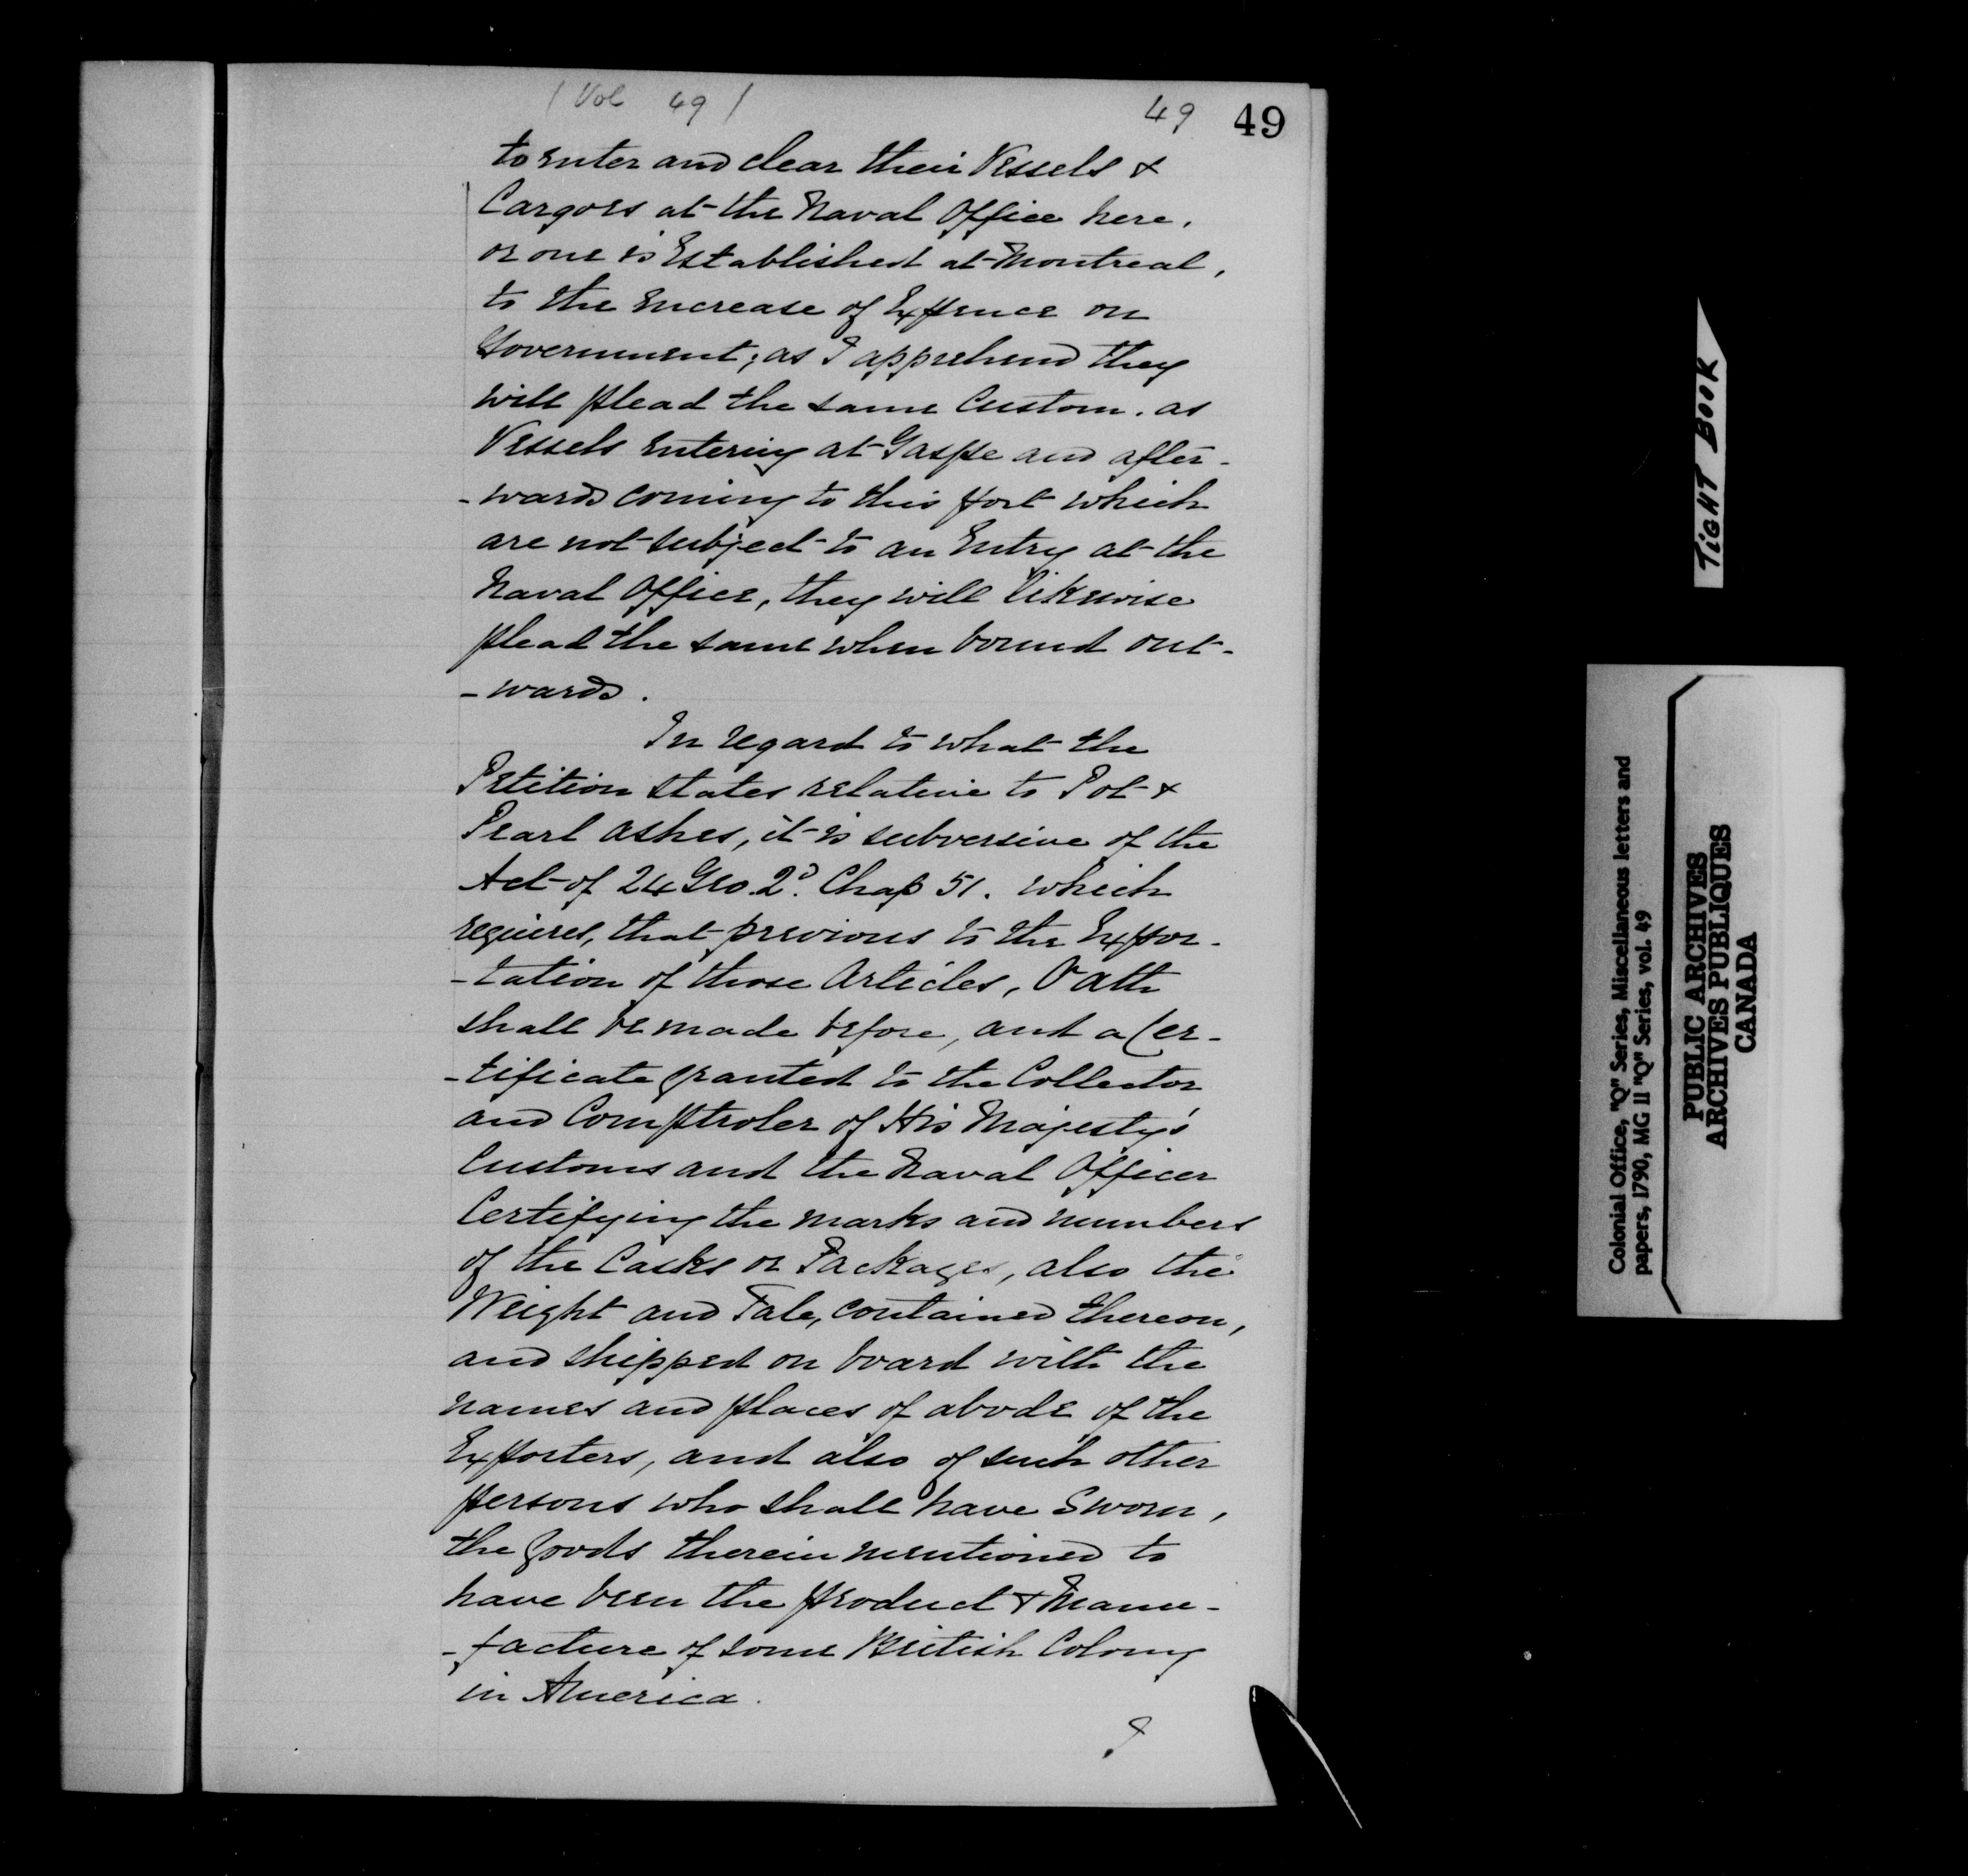 (Vol 49)
49 49
to enter and clear their Vessels &
Cargoes at the Naval Office here,
or one is Established at Montreal,
to the encrease of Expence on
Government; as I apprehend they
will plead the same Custom, as
Vessels entering at Gaspe and after-
-wards coming to this port which
are not subject to an Entry at the
Naval Office, they will likewise
plead the same when bound out-
-wards.
In regard to what the
Petition states relative to Pot &
Pearl ashes, it is subversive of the
Act of 24 Geo. 2d. Chap 51. which
requires, that previous to the Expor-
-tation of those Articles, Oath
shall be made before, and a Cer-
-tificate granted to the Collector
and Comptroler of His Majesty's
Customs and the Naval Officer
Certifying the marks and numbers
of the Casks or Packages, also the
Weight and Tale, contained thereon,
and shipped on board with the
names and places of abode of the
Exporters, and also of such other
persons who shall have Sworn,
the goods therein mentioned to
have been the product & Manu-
-facture of some British Colony
in America.
I
TIGHT BOOK
Colonial Office, "Q" Series, Miscellaneous letters and
papers, 1790, MG 11 "Q" Series, vol. 49
PUBLIC ARCHIVES
ARCHIVES PUBLIQUES
CANADA